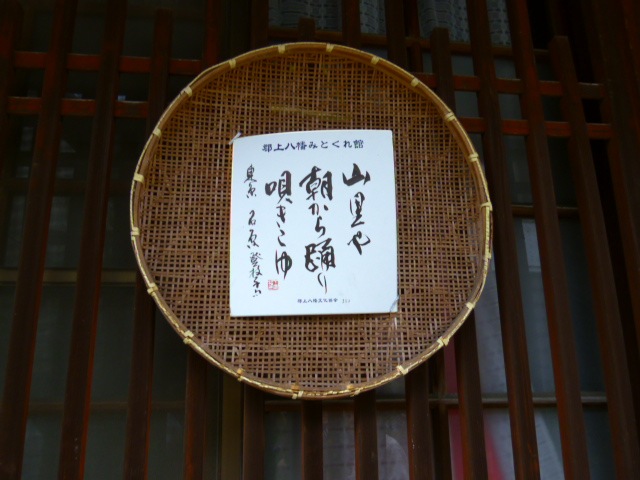 郡上八幡みとくれ館
山里や
朝から踊り
唄きこゆ
東京 石原